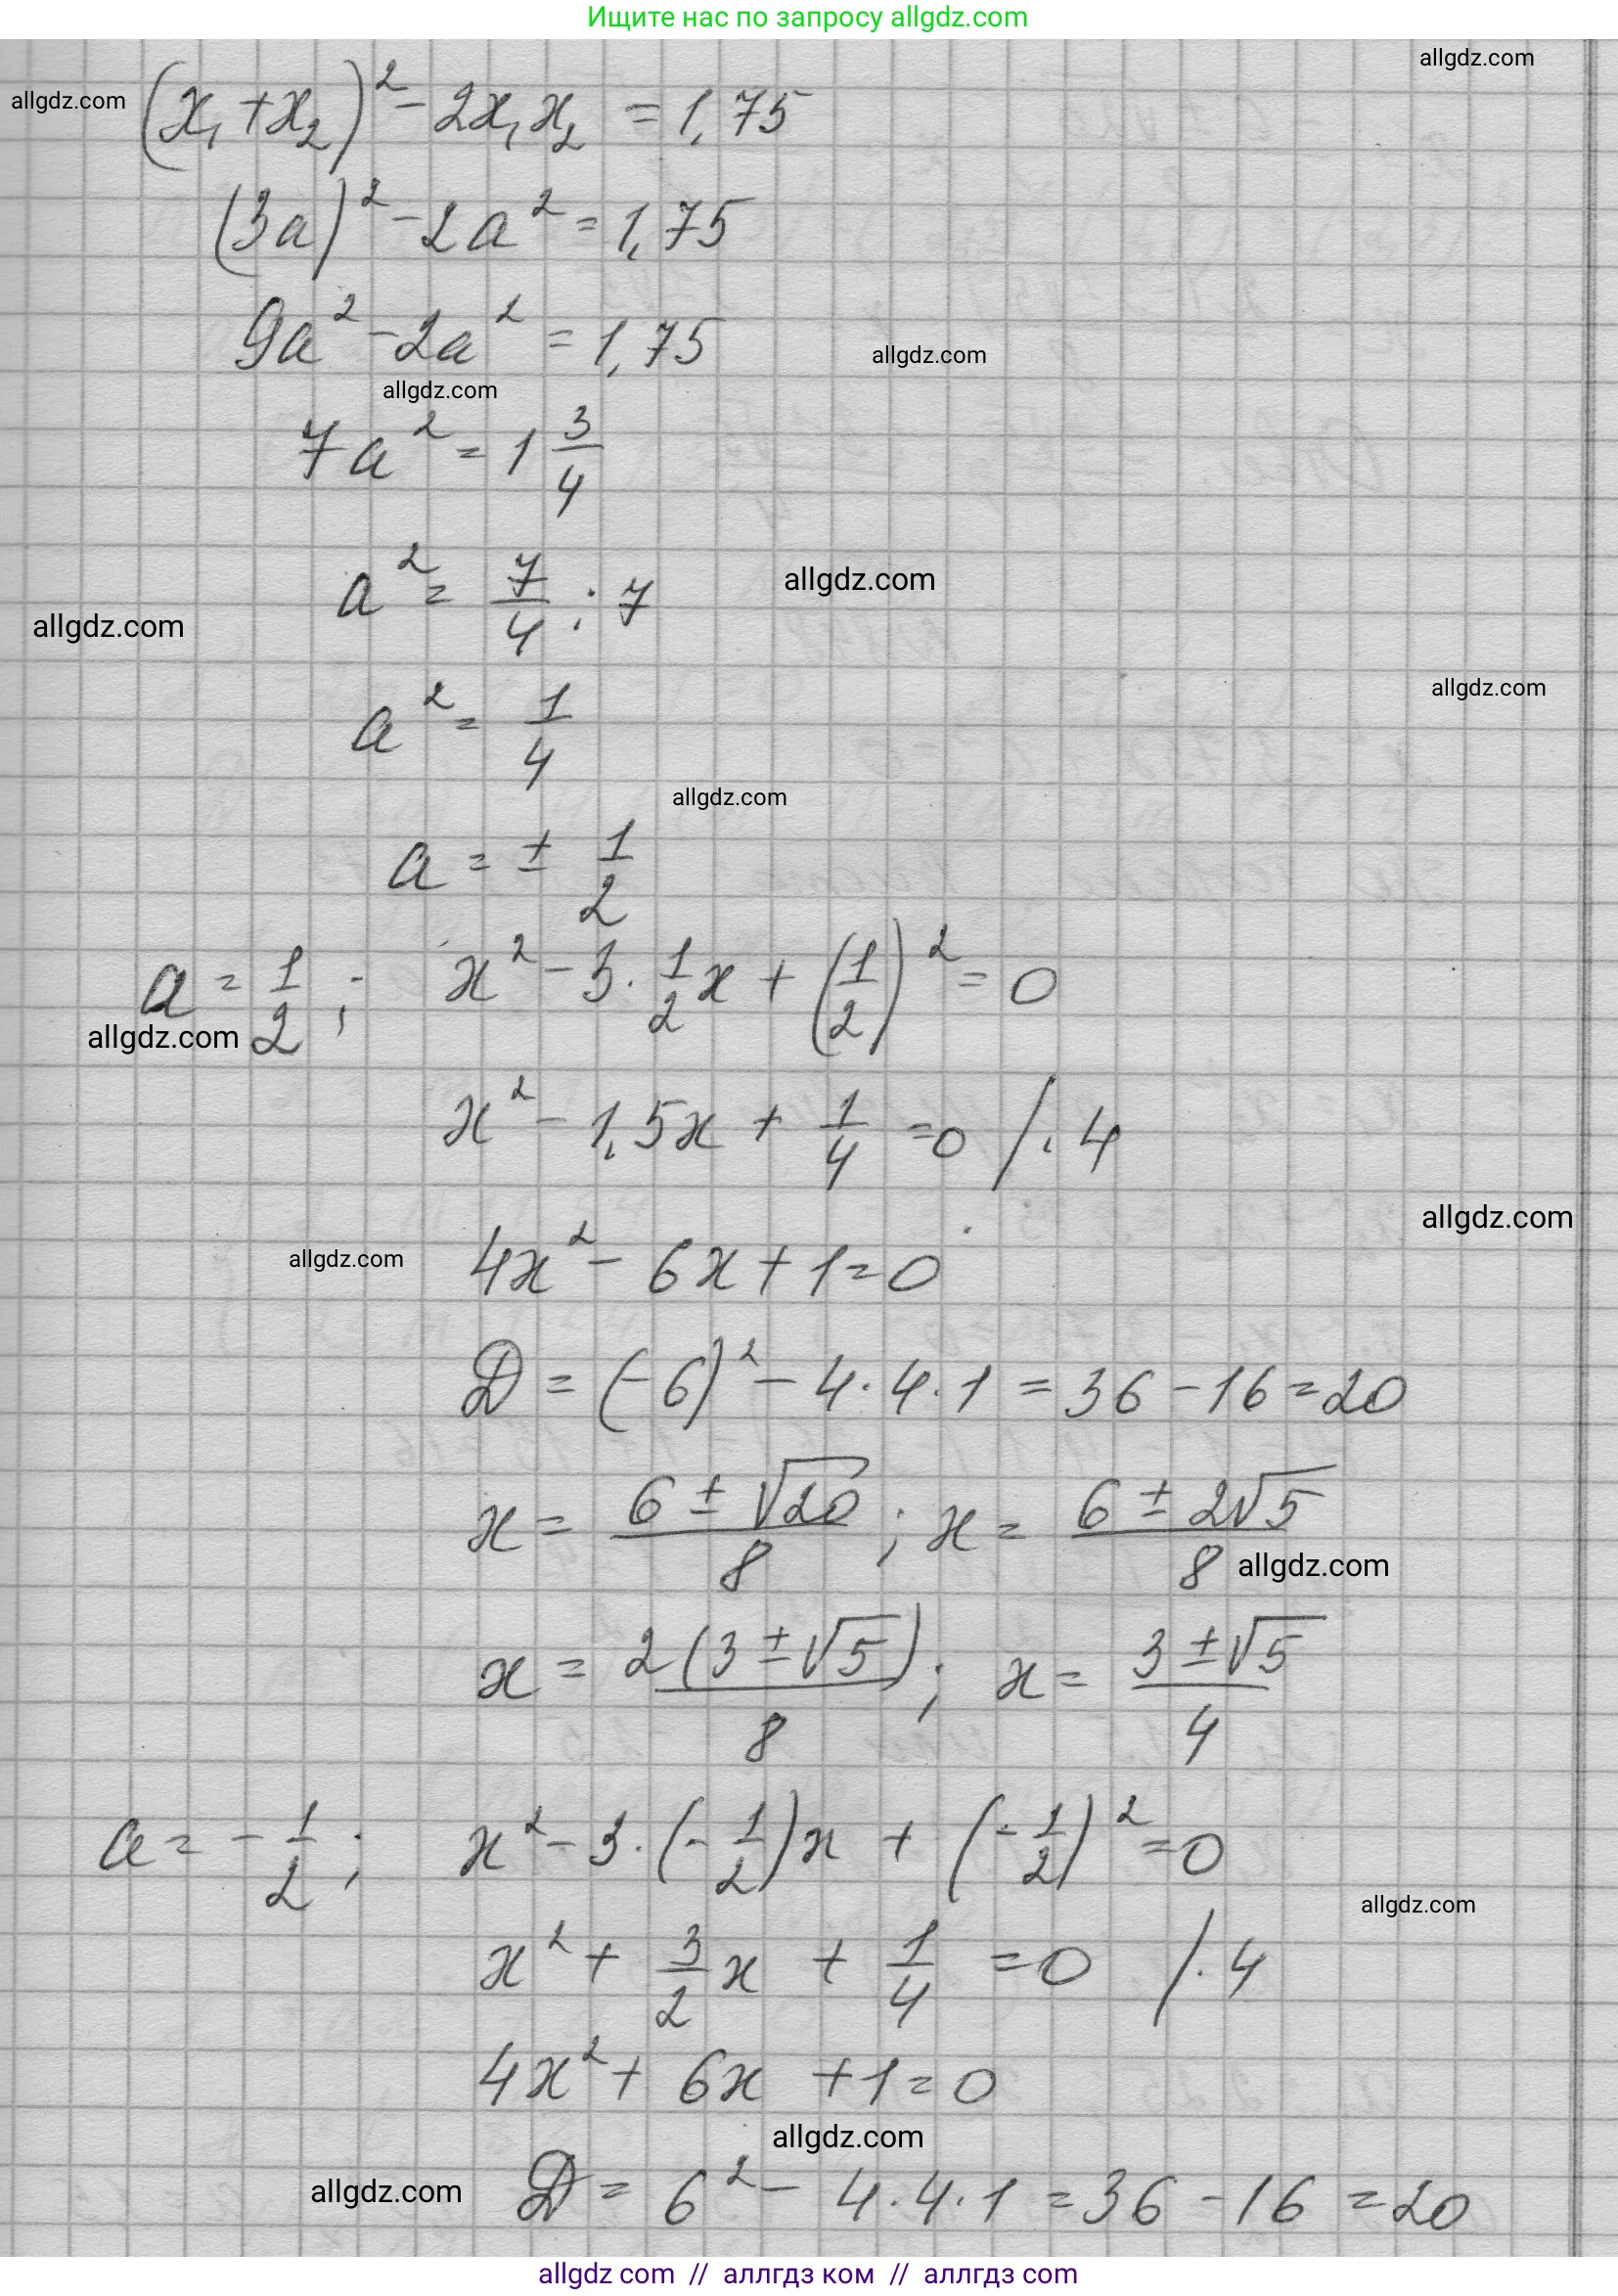 Ищите нас по запросу allgdz.com
allgdz.com
allgdz.com
(x₁+x₂)² - 2x₁x₂ = 1,75
(3a)² - 2a² = 1,75
9a² - 2a² = 1,75
allgdz.com
allgdz.com
7a² = 1 3/4
a² = 7/4 : 7
allgdz.com
allgdz.com
a² = 1/4
allgdz.com
allgdz.com
a = ± 1/2
a = 1/2; x² - 3 · 1/2 x + (1/2)² = 0
allgdz.com
x² - 1,5x + 1/4 = 0 / · 4
allgdz.com
4x² - 6x + 1 = 0
allgdz.com
D = (-6)² - 4 · 4 · 1 = 36 - 16 = 20
x = (6 ± √20)/8 ; x = (6 ± 2√5)/8
allgdz.com
x = 2(3 ± √5)/8 ; x = (3 ± √5)/4
a = - 1/2 ; x² - 3 · (- 1/2)x + (- 1/2)² = 0
allgdz.com
x² + 3/2 x + 1/4 = 0 / · 4
4x² + 6x + 1 = 0
allgdz.com
allgdz.com
D = 6² - 4 · 4 · 1 = 36 - 16 = 20
allgdz com // аллгдз ком // аллгдз com